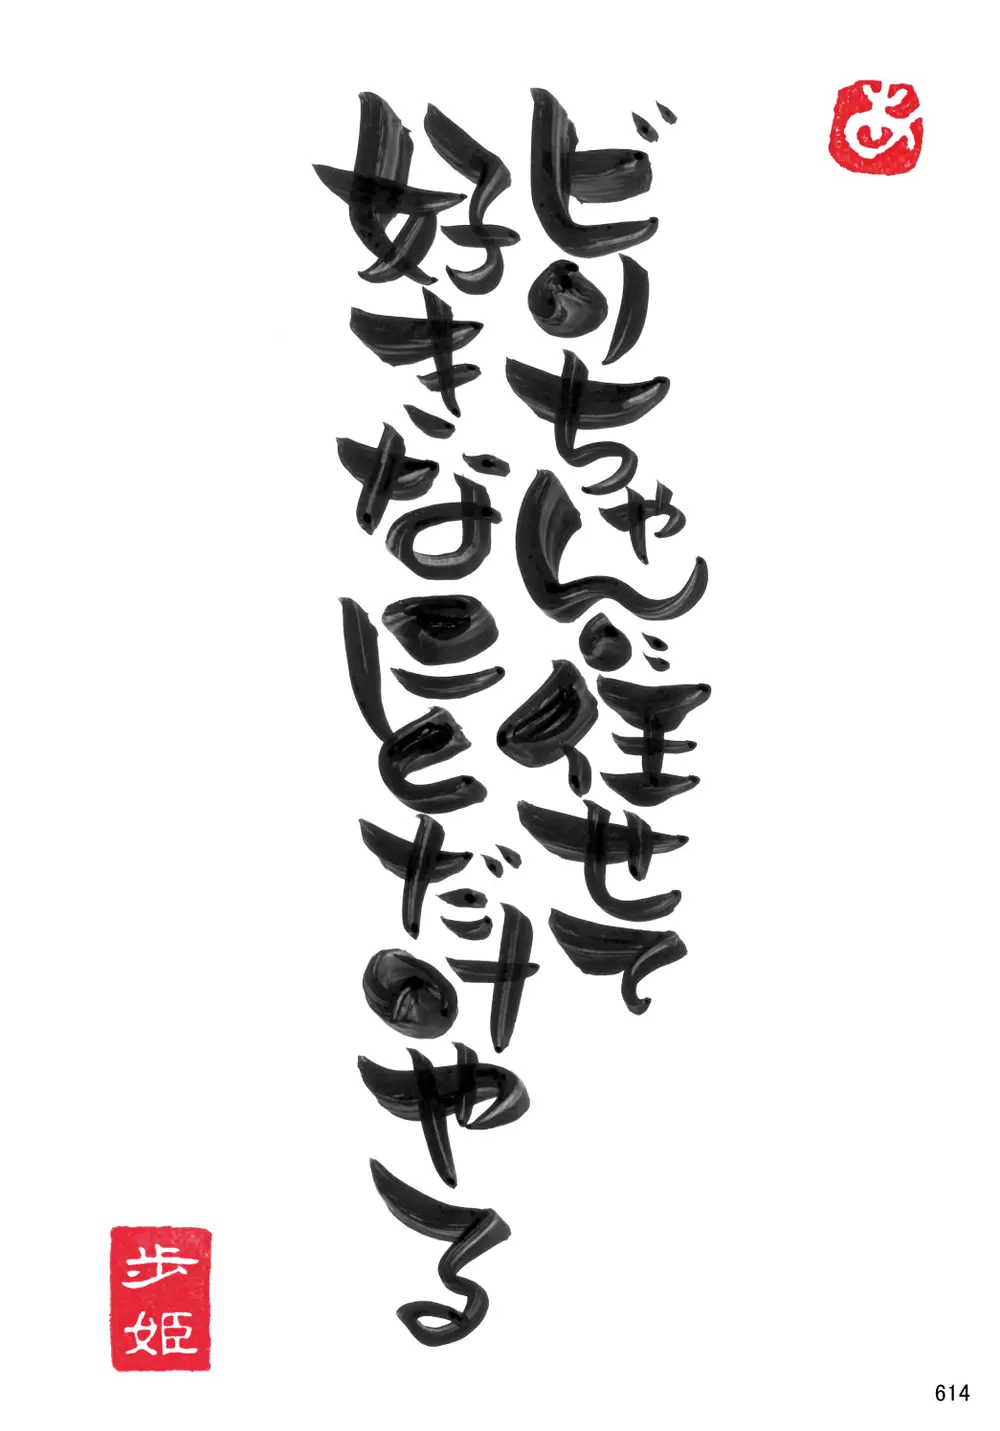 あ
ビリちゃんに任せて
好きなことだけやる
歩姫
614